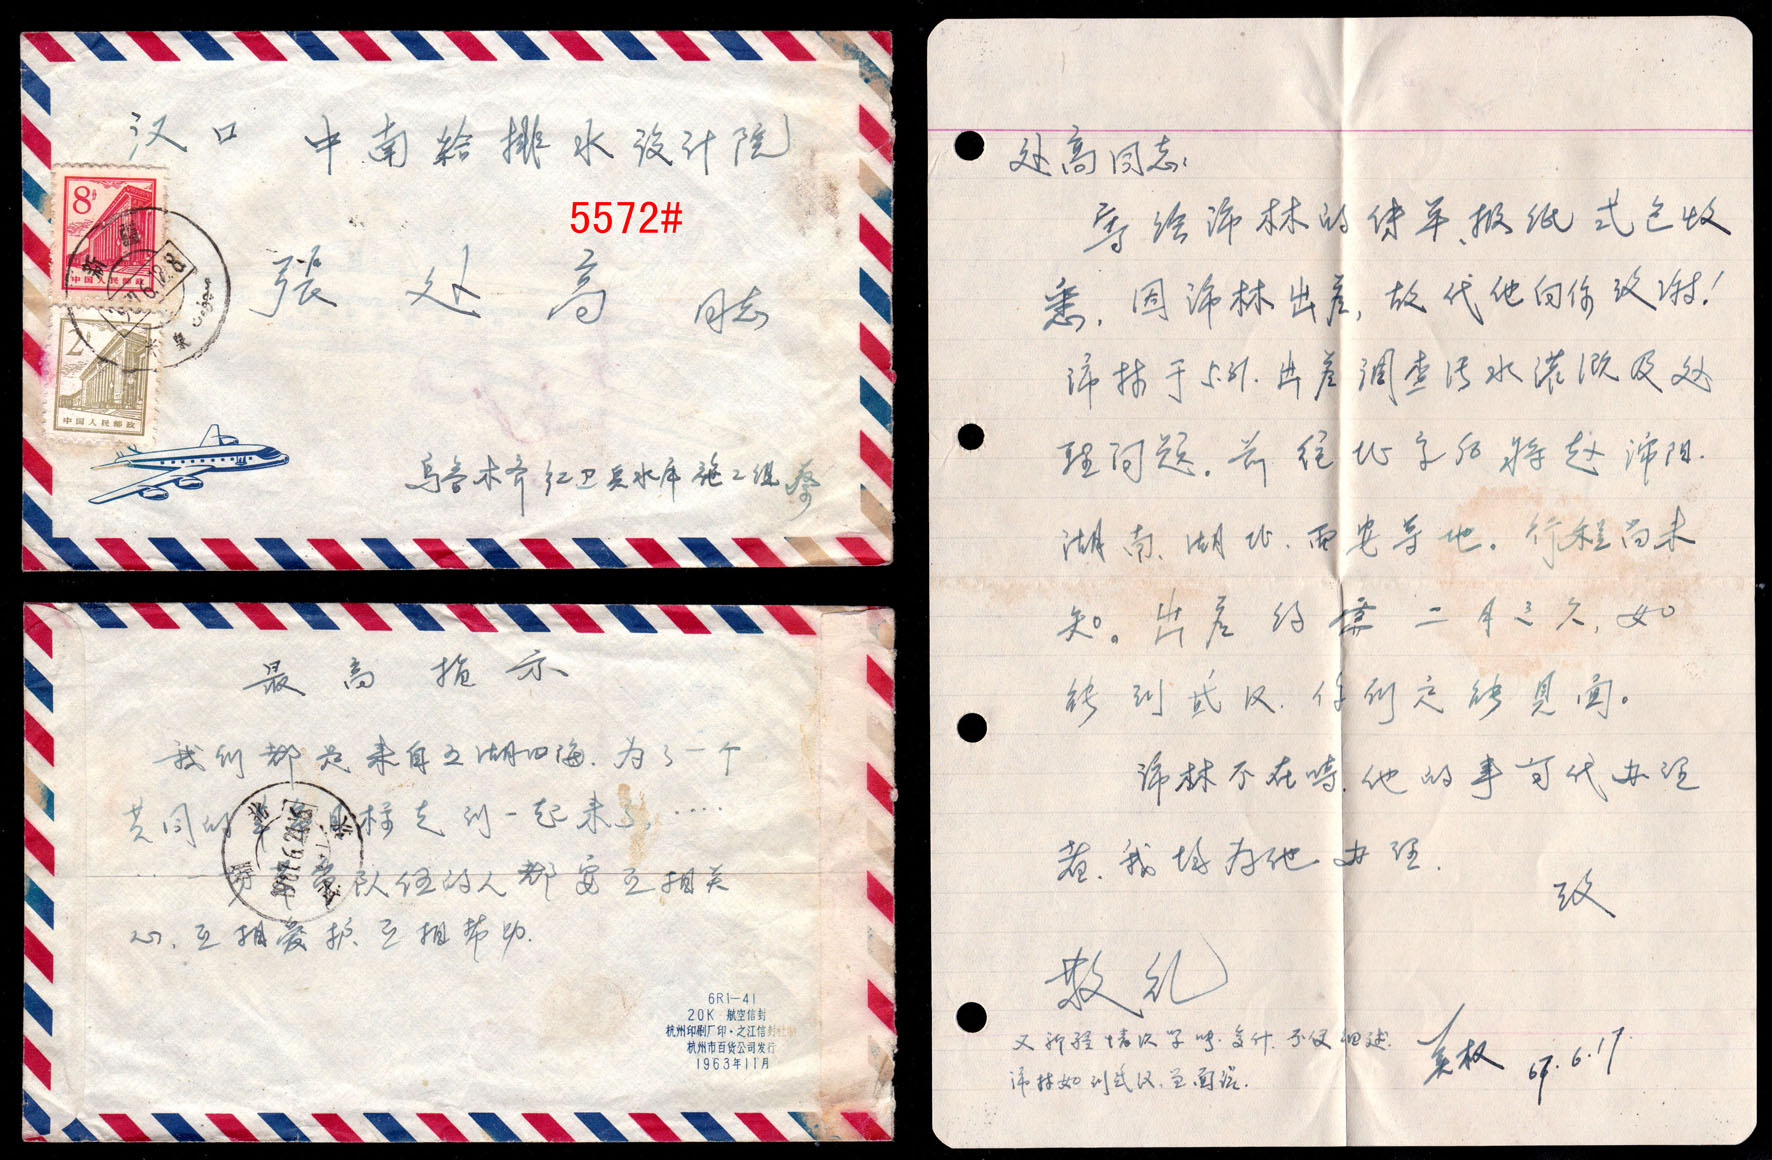 汉口 中南给排水设计院
5572#
張处高 同志
乌鲁木齐红卫兵水库施工组 蔡
8分
中国人民邮政
中国人民邮政
新疆
最高指示
我们都是来自五湖四海,为了一个
共同的革命目标走到一起来了,……
队伍的人都要互相关
心,互相爱护,互相帮助.
6R1-41
20K 航空信封
杭州印刷厂印·之江信封
杭州市百货公司发行
1963年11月
处高同志:
寄给沛林的传单、报纸式包收
悉,因沛林出差,故代他向你致谢!
沛林于5.31.出差调查污水灌溉及处
理问题。前往北京后将赴沈阳.
湖南、湖北、西安等地。行程尚未
知。出差约需二月之久,如
能到武汉.你们定能见面。
沛林不在时,他的事可代办理
者,我均为他办理.
致
敬礼
又新疆情况 复什.不便细述.
沛林如到武汉.当面谈.
美权 67.6.17.